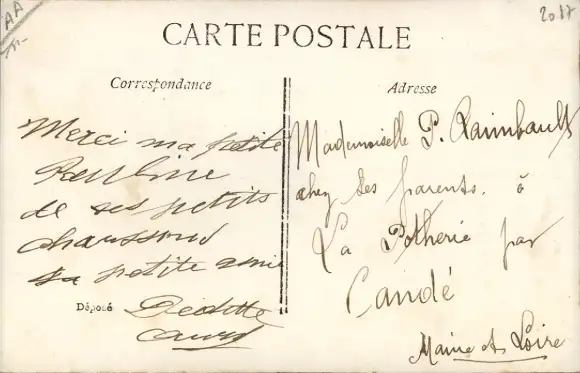 AA
2017
CARTE POSTALE
Correspondance
Adresse
Merci ma petite
Pauline
de ses petits
chaussons
Sa petite amie
Déposé
Mademoiselle P. Raimbault
chez ses parents. à
La Potherie par
Candé
Maine et Loire